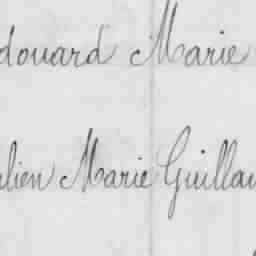 douard Marie
lien Marie Guillau